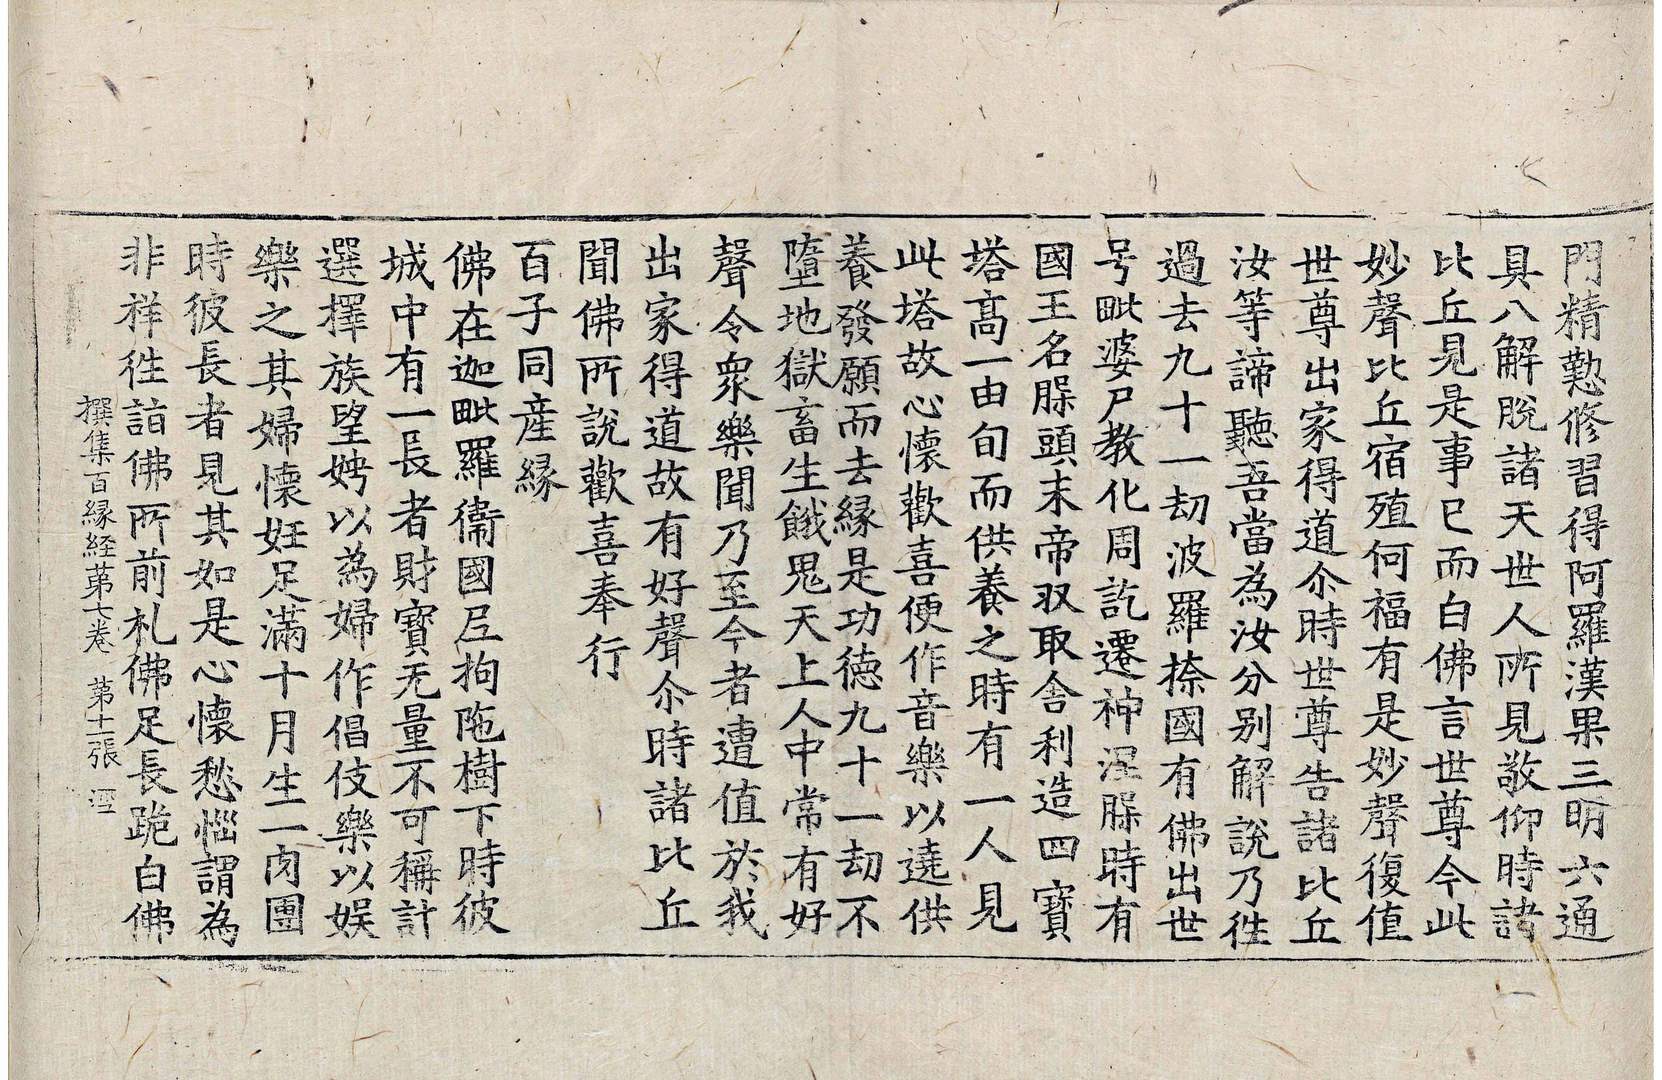 門精懃修習得阿羅漢果三明六通
具八解脫諸天世人所見敬仰時諸
比丘見是事已而白佛言世尊今此
妙聲比丘宿殖何福有是妙聲復值
世尊出家得道尒時世尊告諸比丘
汝等諦聽吾當為汝分别解說乃徃
過去九十一劫波羅㮈國有佛出世
号毗婆尸教化周訖遷神涅槃時有
國王名槃頭末帝収取舍利造四寶
塔髙一由旬而供養之時有一人見
此塔故心懷歡喜便作音樂以遶供
養發願而去縁是功徳九十一劫不
墮地獄畜生餓鬼天上人中常有好
聲令衆樂聞乃至今者遭值於我
出家得道故有好聲尒時諸比丘
聞佛所說歡喜奉行
百子同産縁
佛在迦毗羅衛國尼拘陁樹下時彼
城中有一長者財寶无量不可稱計
選擇族望娉以為婦作倡伎樂以娱
樂之其婦懷妊足滿十月生一肉團
時彼長者見其如是心懷愁惱謂為
非祥徃詣佛所前礼佛足長跪白佛
撰集百縁経苐七卷 第十二張 𢀖